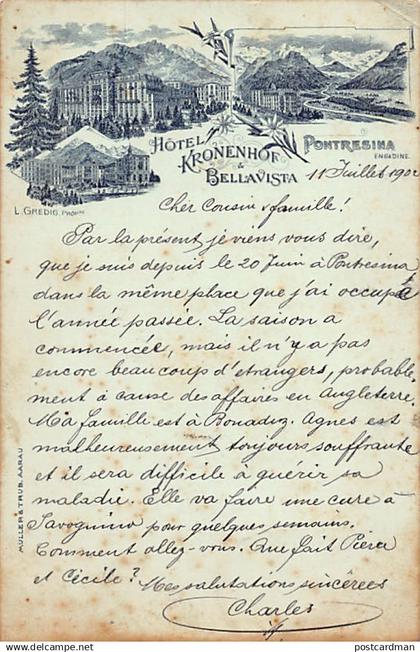 HÔTEL
KRONENHOF
&
BELLAVISTA
PONTRESINA
ENGADINE.
L. GREDIG, PROPRE
11 Juillet 1902
Cher Cousin & famille!
Par la présent, je viens vous dire,
que je suis depuis le 20 Juin à Pontresina
dans la même place que j'ai occupé
l'année passée. La saison a
commencée, mais il n'y a pas
encore beaucoup d'etrangers, probable
ment à cause des affaires en Angleterre.
Ma famille est à Bonaduz. Agnes est
malheureusement toujours souffrante
et il sera difficile à guérir sa
maladie. Elle va faire une cure à
Savognino pour quelques semains.
Comment allez-vous. Que fait Piera
et Cécile? Mes salutations sincêrees
Charles
MÜLLER & TRÜB, AARAU
delcampe.net
postcardman